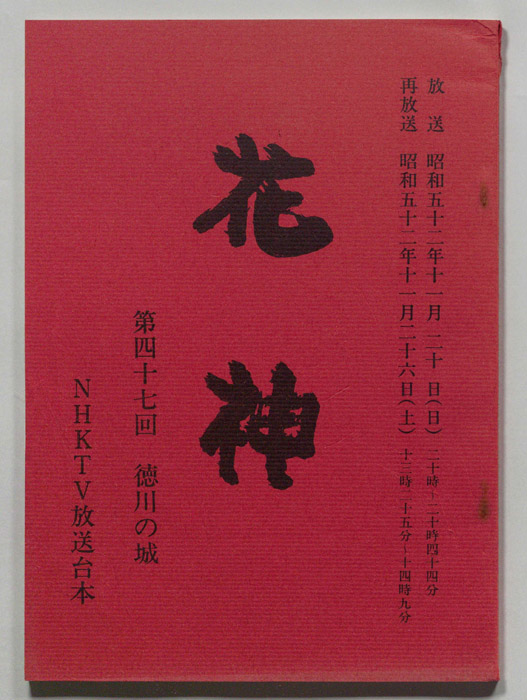 放送 昭和五十二年十一月 二十 日(日) 二十時―二十時四十四分
再放送 昭和五十二年十一月二十六日(土) 十三時二十五分―十四時九分
花神
第四十七回 徳川の城
NHKTV放送台本